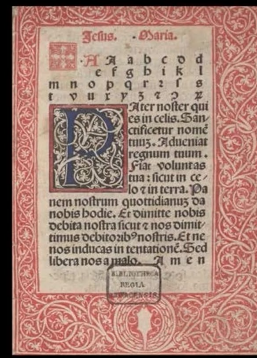 Jesus. Maria.
A a b c d
e f g h i k l
m n o p q r z s
t v u x y z
PAter noster qui
es in celis. San-
ctificetur nomē
tuuz. Adueniat
regnum tuum.
Fiat voluntas
tua: sicut in ce-
lo z in terra. Pa
nem nostrum quottidianuz da
nobis hodie. Et dimitte nobis
debita nostra sicut z nos dimit-
timus debitorib9 nostris. Et ne
nos inducas in tentationē. Sed
libera nos a malo. Amen
BIBLIOTHECA
REGIA